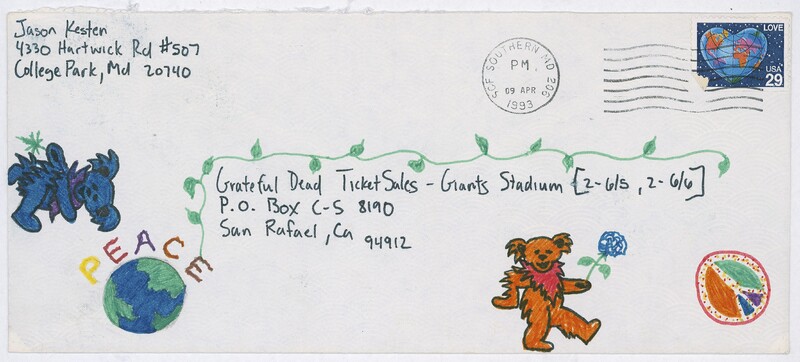 Jason Kesten
4330 Hartwick Rd #507
College Park, Md 20740
SCF SOUTHERN MD 206
PM
09 APR
1993
LOVE
USA
29
Grateful Dead Ticket Sales - Giants Stadium [2-6/5, 2-6/6]
P.O. Box C-S 8190
San Rafael, Ca 94912
PEACE